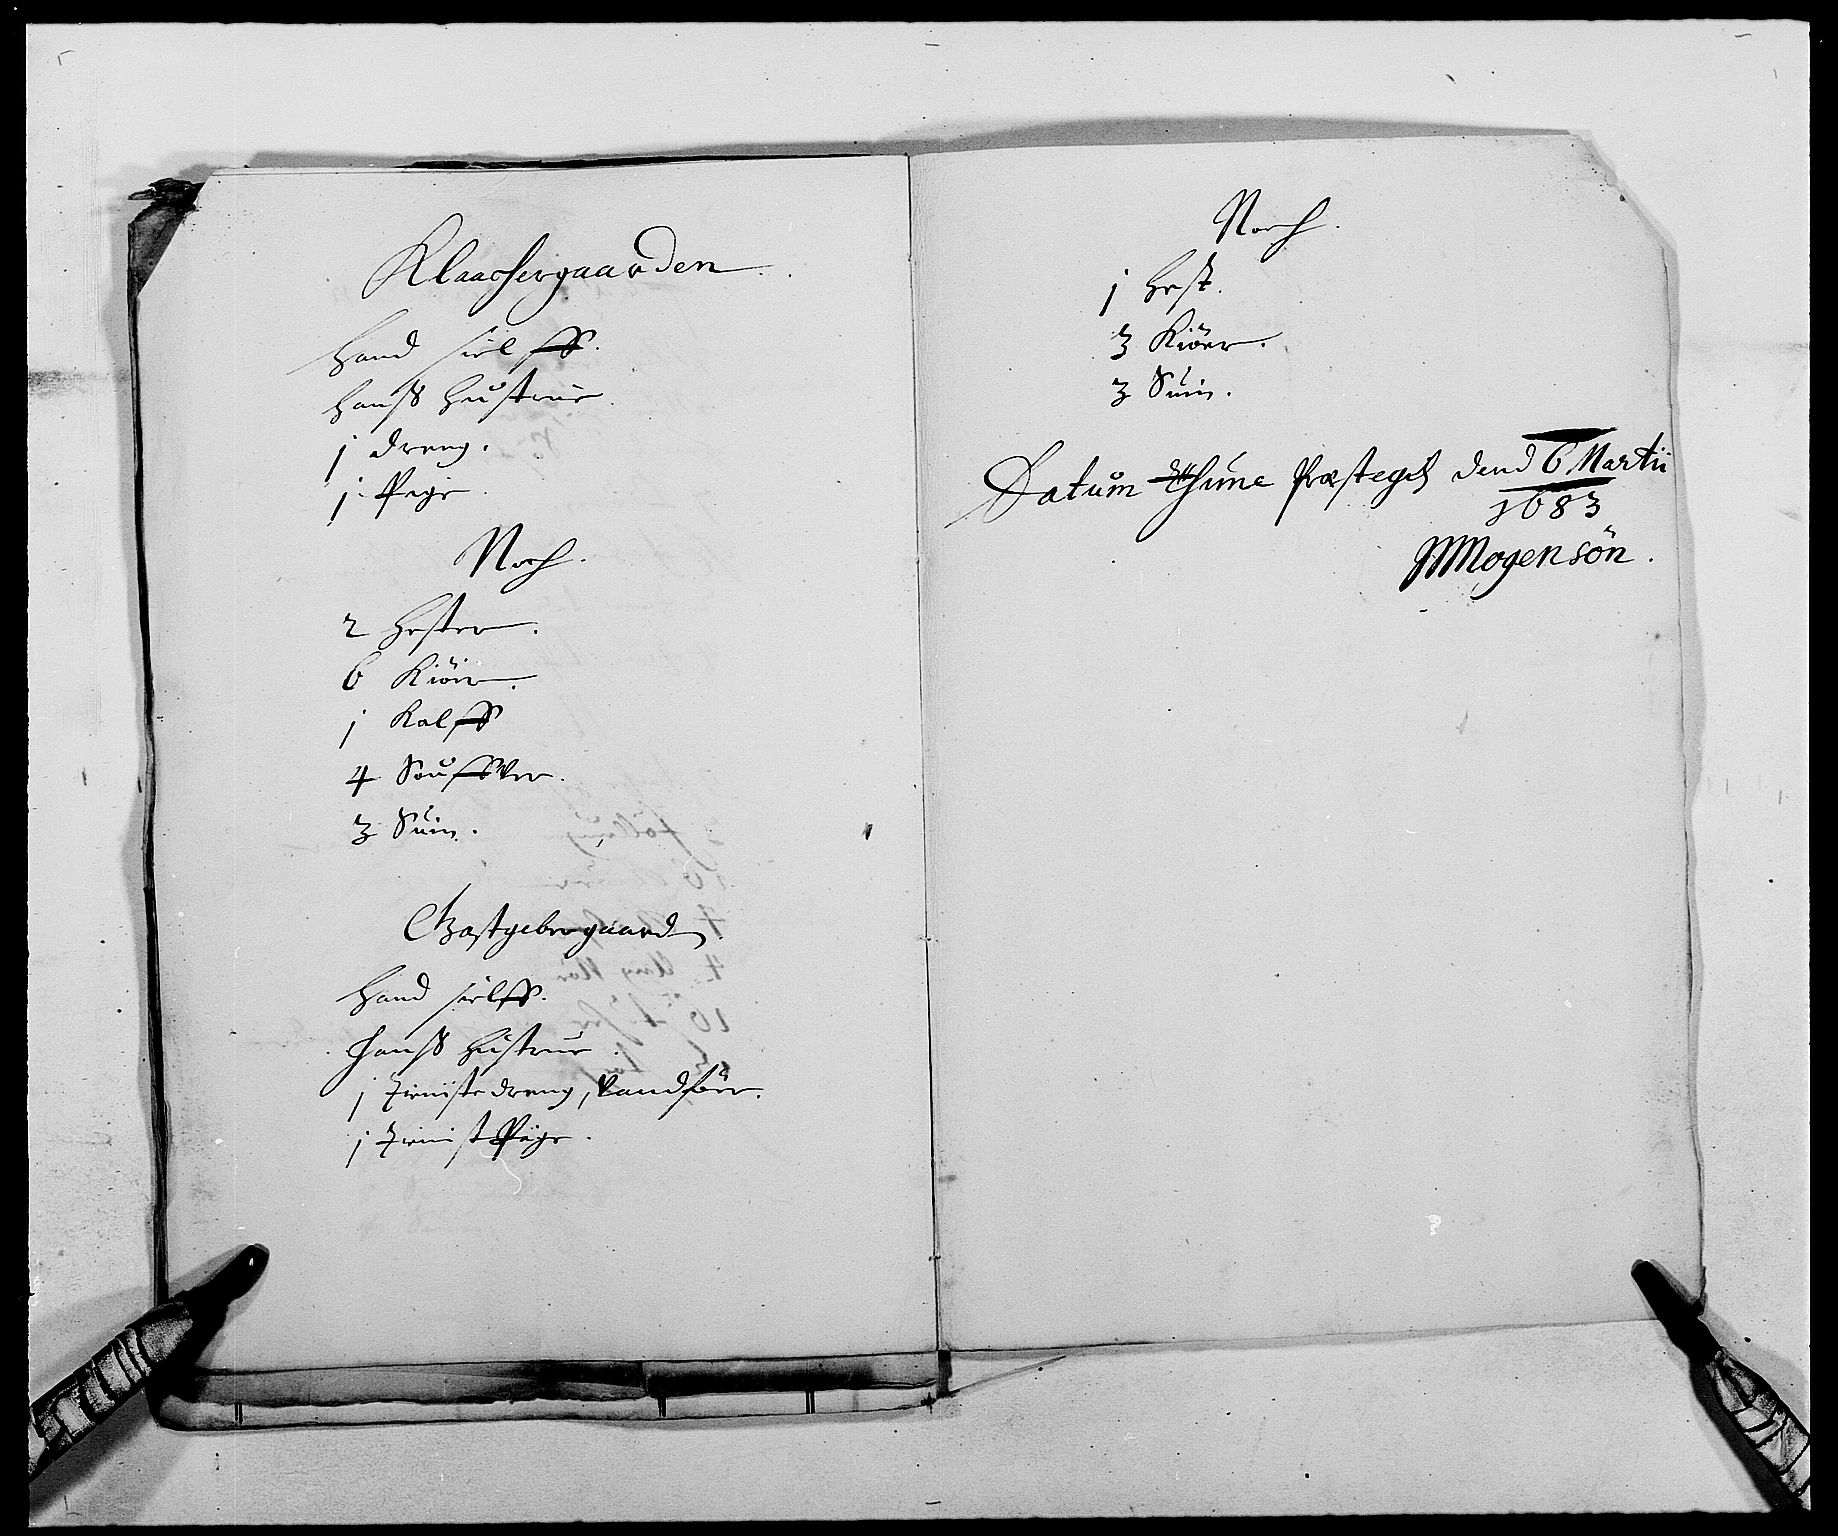 Klaachergaarden
Hand siel ff.
Hanß Hustrue
1 dreng.
1 Pige.
Noch.
2 Hester.
6 Kiöer.
1 Kalff
4 Souffver.
3 Suin.
Giæstgebergaard
Hand sielff.
Hanß Hustrue.
1 Tieniste dreng, Vandför.
1 Tienist Pige.
Noch.
1 Hest.
3 Kiöer.
3 Suin.
Datum Præstegd dend 6 Martii
1683
Mogensön.